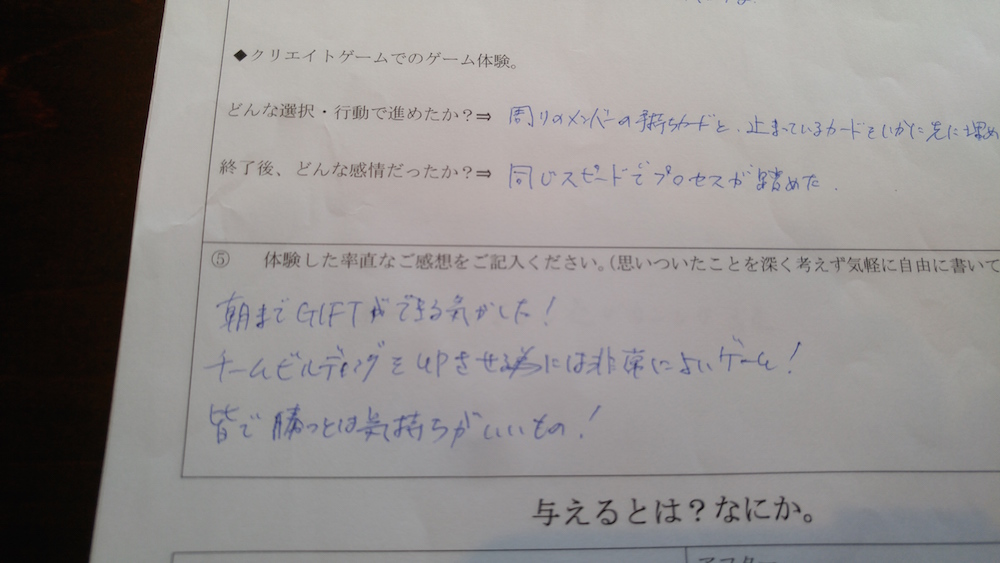 ◆クリエイトゲームでのゲーム体験。
どんな選択・行動で進めたか？⇒ 周りのメンバーの手持ちカードと、止まっているカードをいかに先に埋め
終了後、どんな感情だったか？⇒ 同じスピードでプロセスが踏めた.
⑤ 体験した率直なご感想をご記入ください。（思いついたことを深く考えず気軽に自由に書いて
朝までGIFTができる気がした！
チームビルディングをUPさせる為には非常によいゲーム！
皆で勝つとは気持ちがいいもの！
与えるとは？なにか。
アフター